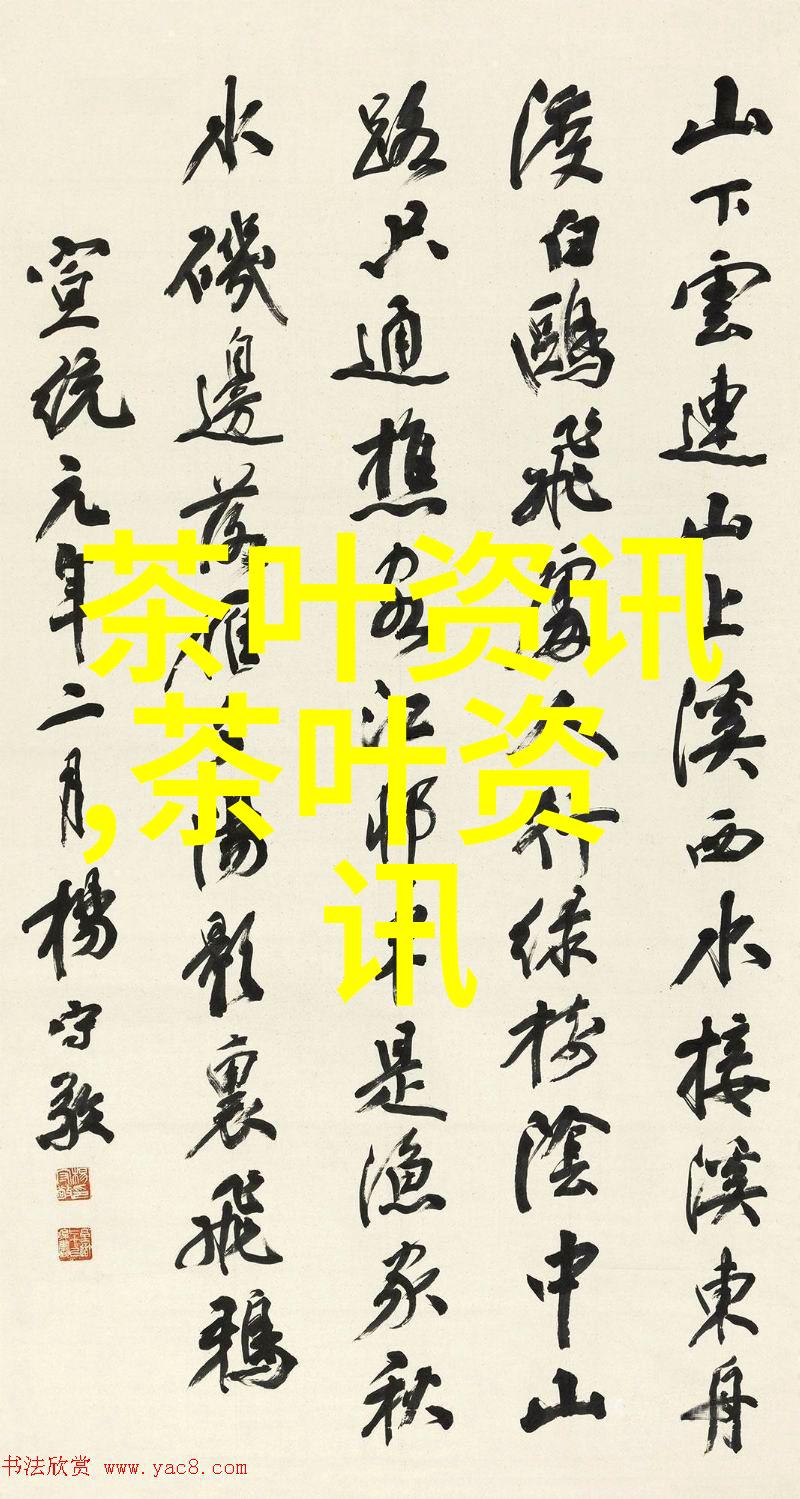 山下雲連山上溪西水接溪東舟
渡白鷗飛處人行綠樹陰中山
路只通樵客江邨半是漁家秋
水磯邊落雁夕陽影裏飛鴉
宣統元年二月楊守敬
茶叶资讯
,茶叶资
讯
书法欣赏 www.yac8.com